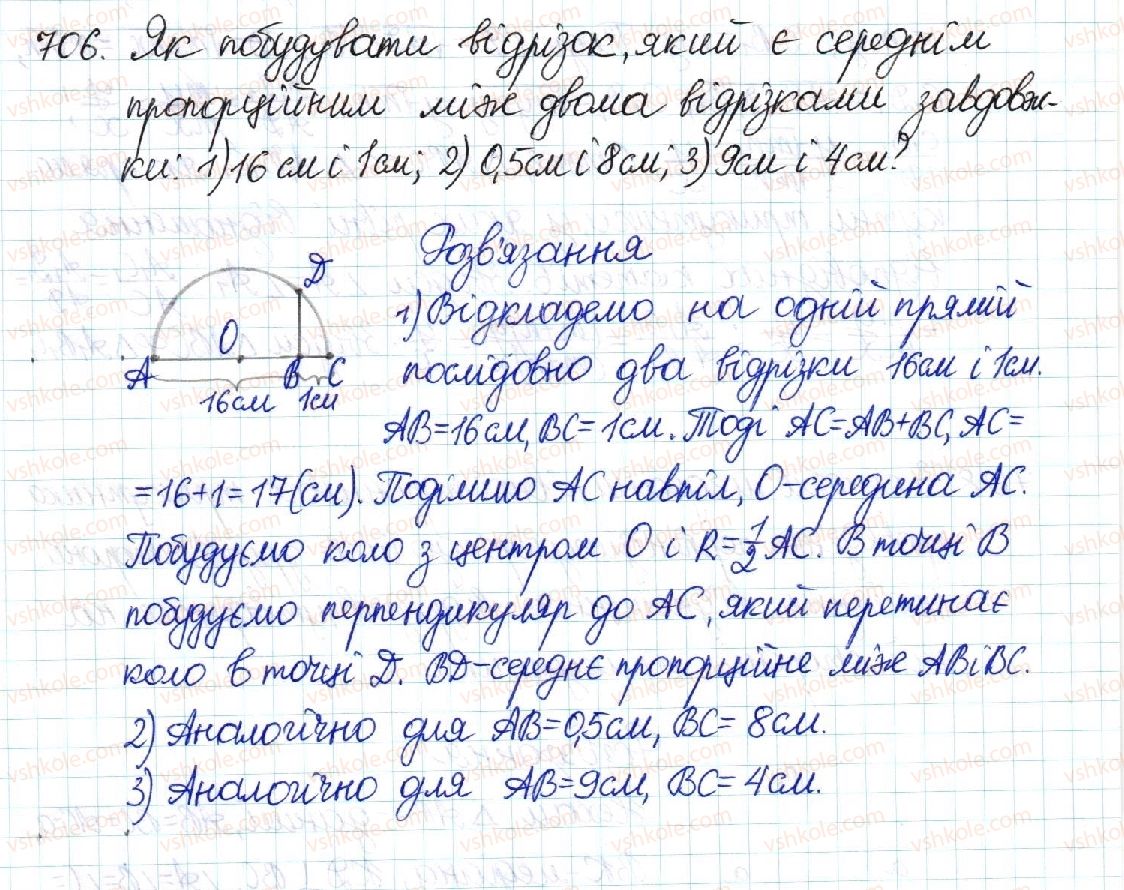 706. Як побудувати відрізок, який є середнім
пропорційним між двома відрізками завдовж-
ки: 1) 16 см і 1 см; 2) 0,5 см і 8 см; 3) 9 см і 4 см?
Розв'язання
D
O
A B C
16 см 1 см
1) Відкладемо на одній прямій
послідовно два відрізки 16 см і 1 см.
AB = 16 см, BC = 1 см. Тоді AC = AB + BC, AC =
= 16 + 1 = 17 (см). Поділимо AC навпіл, O - середина AC.
Побудуємо коло з центром O і R = 1/2 AC. В точці B
побудуємо перпендикуляр до AC, який перетинає
коло в точці D. BD - середнє пропорційне між AB і BC.
2) Аналогічно для AB = 0,5 см, BC = 8 см.
3) Аналогічно для AB = 9 см, BC = 4 см.
vshkole.com